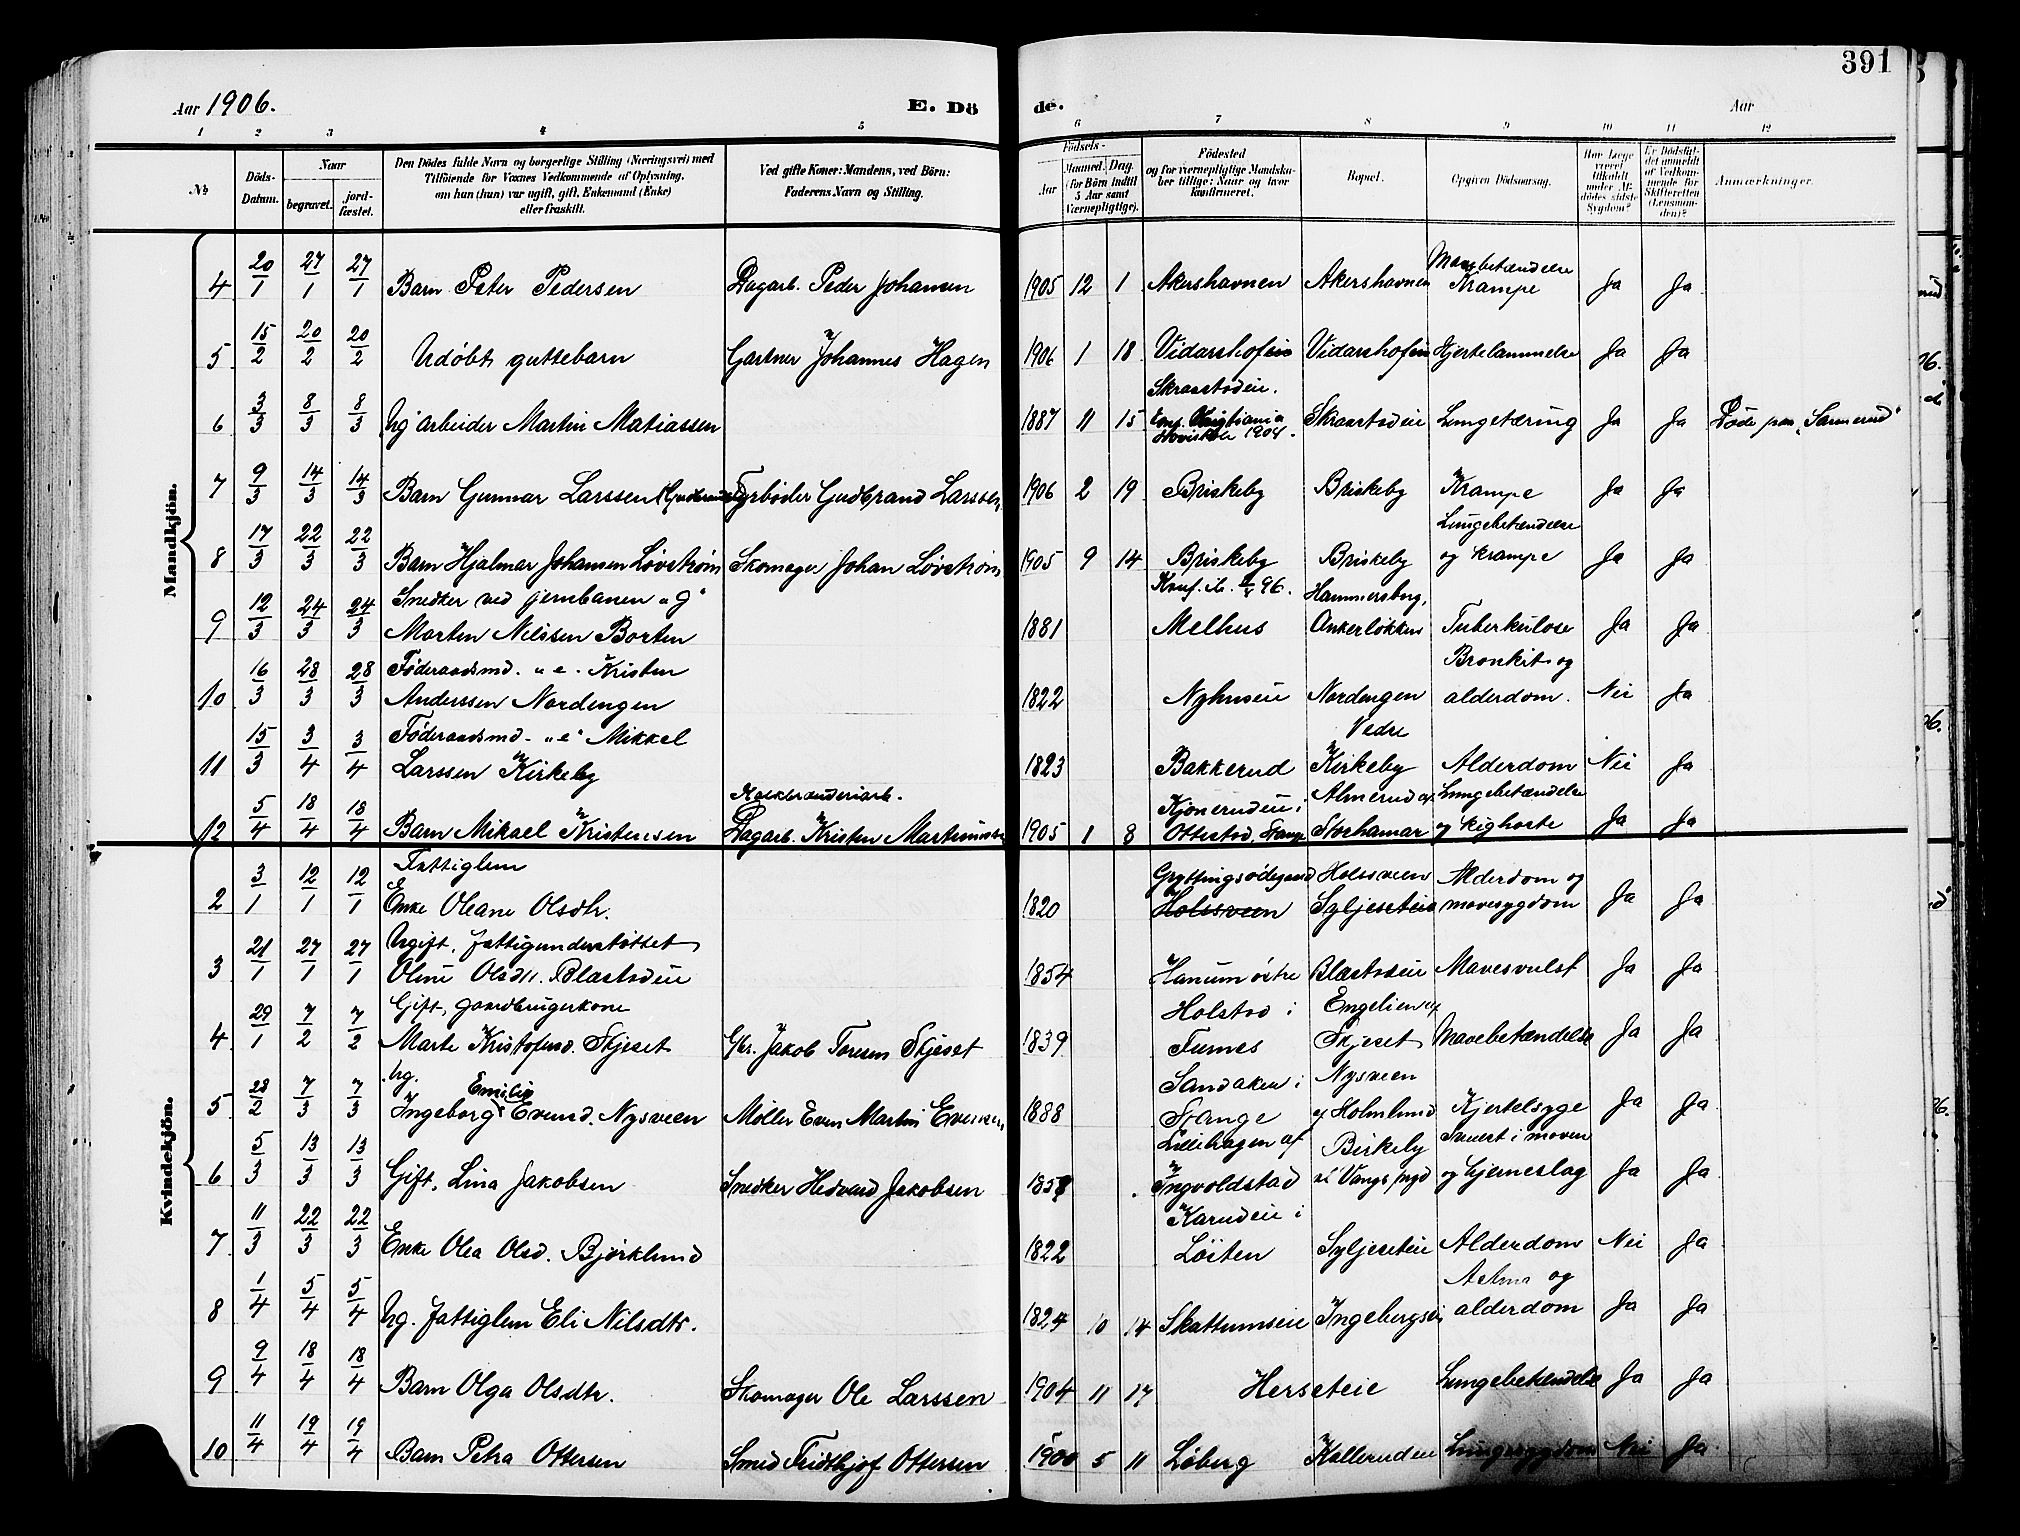 391
Aar 1906. E. Dö de. Aar
1 2 3 4 5 6 7 8 9 10 11 12
No
Döds-Datum.
Naar
begravet.
jord-fæstet.
Den Dödes fulde Navn og borgerlige Stilling (Næringsvei) med
Tilföiende for Voxnes Vedkommende af Oplysning,
om han (hun) var ugift, gift, Enkemand (Enke)
eller fraskilt.
Ved gifte Koner: Mandens, ved Börn:
Faderens Navn og Stilling.
Födsels-
Aar
Maaned. Dag.
(for Börn indtil
5 Aar samt
Værnepligtige).
Födested
og for værnepligtige Mandska-
ber tillige: Naar og hvor
konfirmeret.
Bopæl.
Opgiven Dödsaarsag.
Har Læge
været
tilkaldt
under Af-
dödes sidste
Sygdom?
Er Dödsfal-
det anmeldt
af Vedkom-
mende for
Skifteretten
(Lensman-
den)?
Anmærkninger.
Mandkjön.
4 20/1 27/1 27/1 Barn Peter Pedersen Dagarb. Peder Johansen 1905 12 1 Akershavnen Akershavnen Mavebetændelse Krampe Ja Ja
5 15/2 20/2 20/2 Udøbt guttebarn Gartner Johannes Hagen 1906 1 18 Vidarshofeie Vidarshofeie Hjertelammelse Ja Ja
6 3/3 8/3 8/3 Ug arbeider Martin Matiassen 1887 11 15 Skraastadeie. Kristiania 1904. Skraastadeie Lungetæring Ja Ja Døde paa „Sanerud"
7 9/3 14/3 14/3 Barn Gunnar Larssen Fyrbøder Gudbrand Larssen 1906 2 19 Briskeby Briskeby Krampe Ja Ja
8 17/3 22/3 22/3 Barn Hjalmar Johansen Løvstrøm Skomager Johan Løvstrøm 1905 9 14 Briskeby Briskeby Lungebetændelse og krampe Ja Ja
9 12/3 24/3 24/3 Snedker ved jernbanen „g" Morten Nilssen Borten 1881 Konf. 96. Melhus Hammersborg, Ankerløkken Tuberkulose Ja Ja
10 16/3 28/3 28/3 Føderaadsmd. „e" Kristen Anderssen Nordengen 1822 Nyhuseie Nordengen Bronkit og alderdom. Nei Ja
11 15/3 3/4 3/4 Føderaadsmd. „e" Mikkel Larssen Kirkeby 1823 Bakkerud Vedre Kirkeby Alderdom Nei Ja
12 5/4 18/4 18/4 Barn Mikael Kristensen Kalkbrænderiarb. Dagarb. Kristen Martinussen 1905 1 8 Kjonerudeie i Ottestad, Stange Almerud af Storhamar Lungebetændelse og kighoste Ja Ja
Kvindekjön.
2 3/1 12/1 12/1 Fattiglem Enke Oleane Olsdtr. 1820 Gryttingsødegaard Holssveen Holssveen Syljeseteie Alderdom og mavesygdom Ja Ja
3 21/1 27/1 27/1 Ugift, fattigunderstøttet Oline Olsdtr. Blæstadeie 1854 Hanum østre Blæstadeie Mavesvulst Ja Ja
4 29/1 7/2 7/2 Gift, gaardbrugerkone Marte Kristofersd. Skjeset Gbr. Jakob Toresen Skjeset 1839 Holstad i Furnes Engelien af Skjeset Mavebetændelse Ja Ja
5 28/2 7/3 7/3 Ug. Ingeborg Emilie Evensd. Nysveen Møller Even Martin Evensen 1888 Sandaken i Stange Nysveen af Holmlund Kjertelsyge Ja Ja
6 5/3 13/3 13/3 Gift, Lina Jakobsen Snedker Hedvard Jakobsen Lillehagen af Ingvoldstad Birkeby i Vangs prgd Svulst i maven og hjerneslag Ja Ja
7 11/3 22/3 22/3 Enke Olea Olsd. Bjørklund 1822 Karudeie i Løiten Syljeseteie Alderdom Nei Ja
8 1/4 5/4 5/4 Ug. fattiglem Eli Nilsdtr. 1824 10 14 Skattumseie Ingebergseie Astma og alderdom Ja Ja
9 9/4 18/4 18/4 Barn Olga Olsdtr. Skomager Ole Larssen 1904 11 17 Herseteie Lungebetændelse Ja Ja
10 11/4 19/4 19/4 Barn Petra Ottersen Smed Fridthjof Ottersen 1900 5 11 Løberg Kollerudeie Lungesygdom Nei Ja